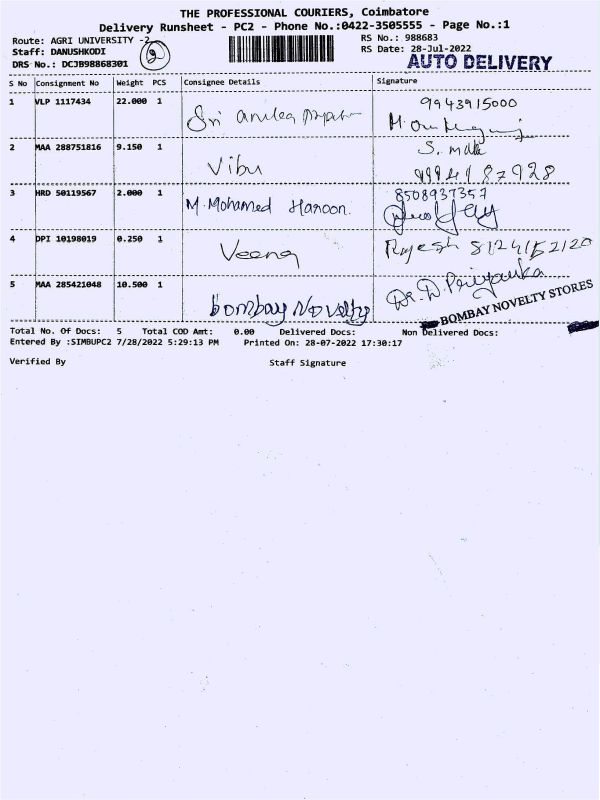 THE PROFESSIONAL COURIERS, Coimbatore
Delivery Runsheet - PC2 - Phone No.:0422-3505555 - Page No.:1
Route: AGRI UNIVERSITY -2
Staff: DANUSHKODI
DRS No.: DCJB98868301
2
RS No.: 988683
RS Date: 28-Jul-2022
AUTO DELIVERY
S No Consignment No Weight PCS Consignee Details Signature
1 VLP 1117434 22.000 1 Sri 9943915000
2 MAA 288751816 9.150 1 Vibu S. 9994187928
3 HRD 50119567 2.000 1 M. Mohamed Haroon. 8508937357
4 DPI 10198019 0.250 1 Veena Rajesh 8124152120
5 MAA 285421048 10.500 1 Bombay Novelty Dr. D. Priyanka
BOMBAY NOVELTY STORES
Total No. Of Docs: 5 Total COD Amt: 0.00 Delivered Docs: Non Delivered Docs:
Entered By :SIMBUPC2 7/28/2022 5:29:13 PM Printed On: 28-07-2022 17:30:17
Verified By Staff Signature